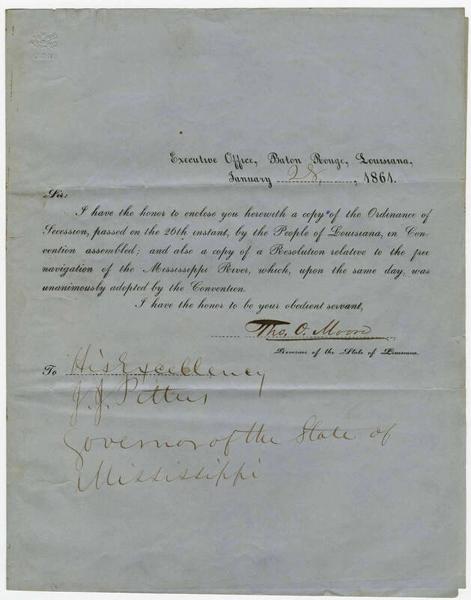 Executive Office, Baton Rouge, Louisiana,
January 28, 1861.
Sir:
I have the honor to enclose you herewith a copy of the Ordinance of
Secession, passed on the 26th instant, by the People of Louisiana, in Con-
vention assembled; and also a copy of a Resolution relative to the free
navigation of the Mississippi River, which, upon the same day, was
unanimously adopted by the Convention.
I have the honor to be your obedient servant,
Tho. O. Moore
Governor of the State of Louisiana.
To His Excellency
J. J. Pettus
Governor of the State of
Mississippi